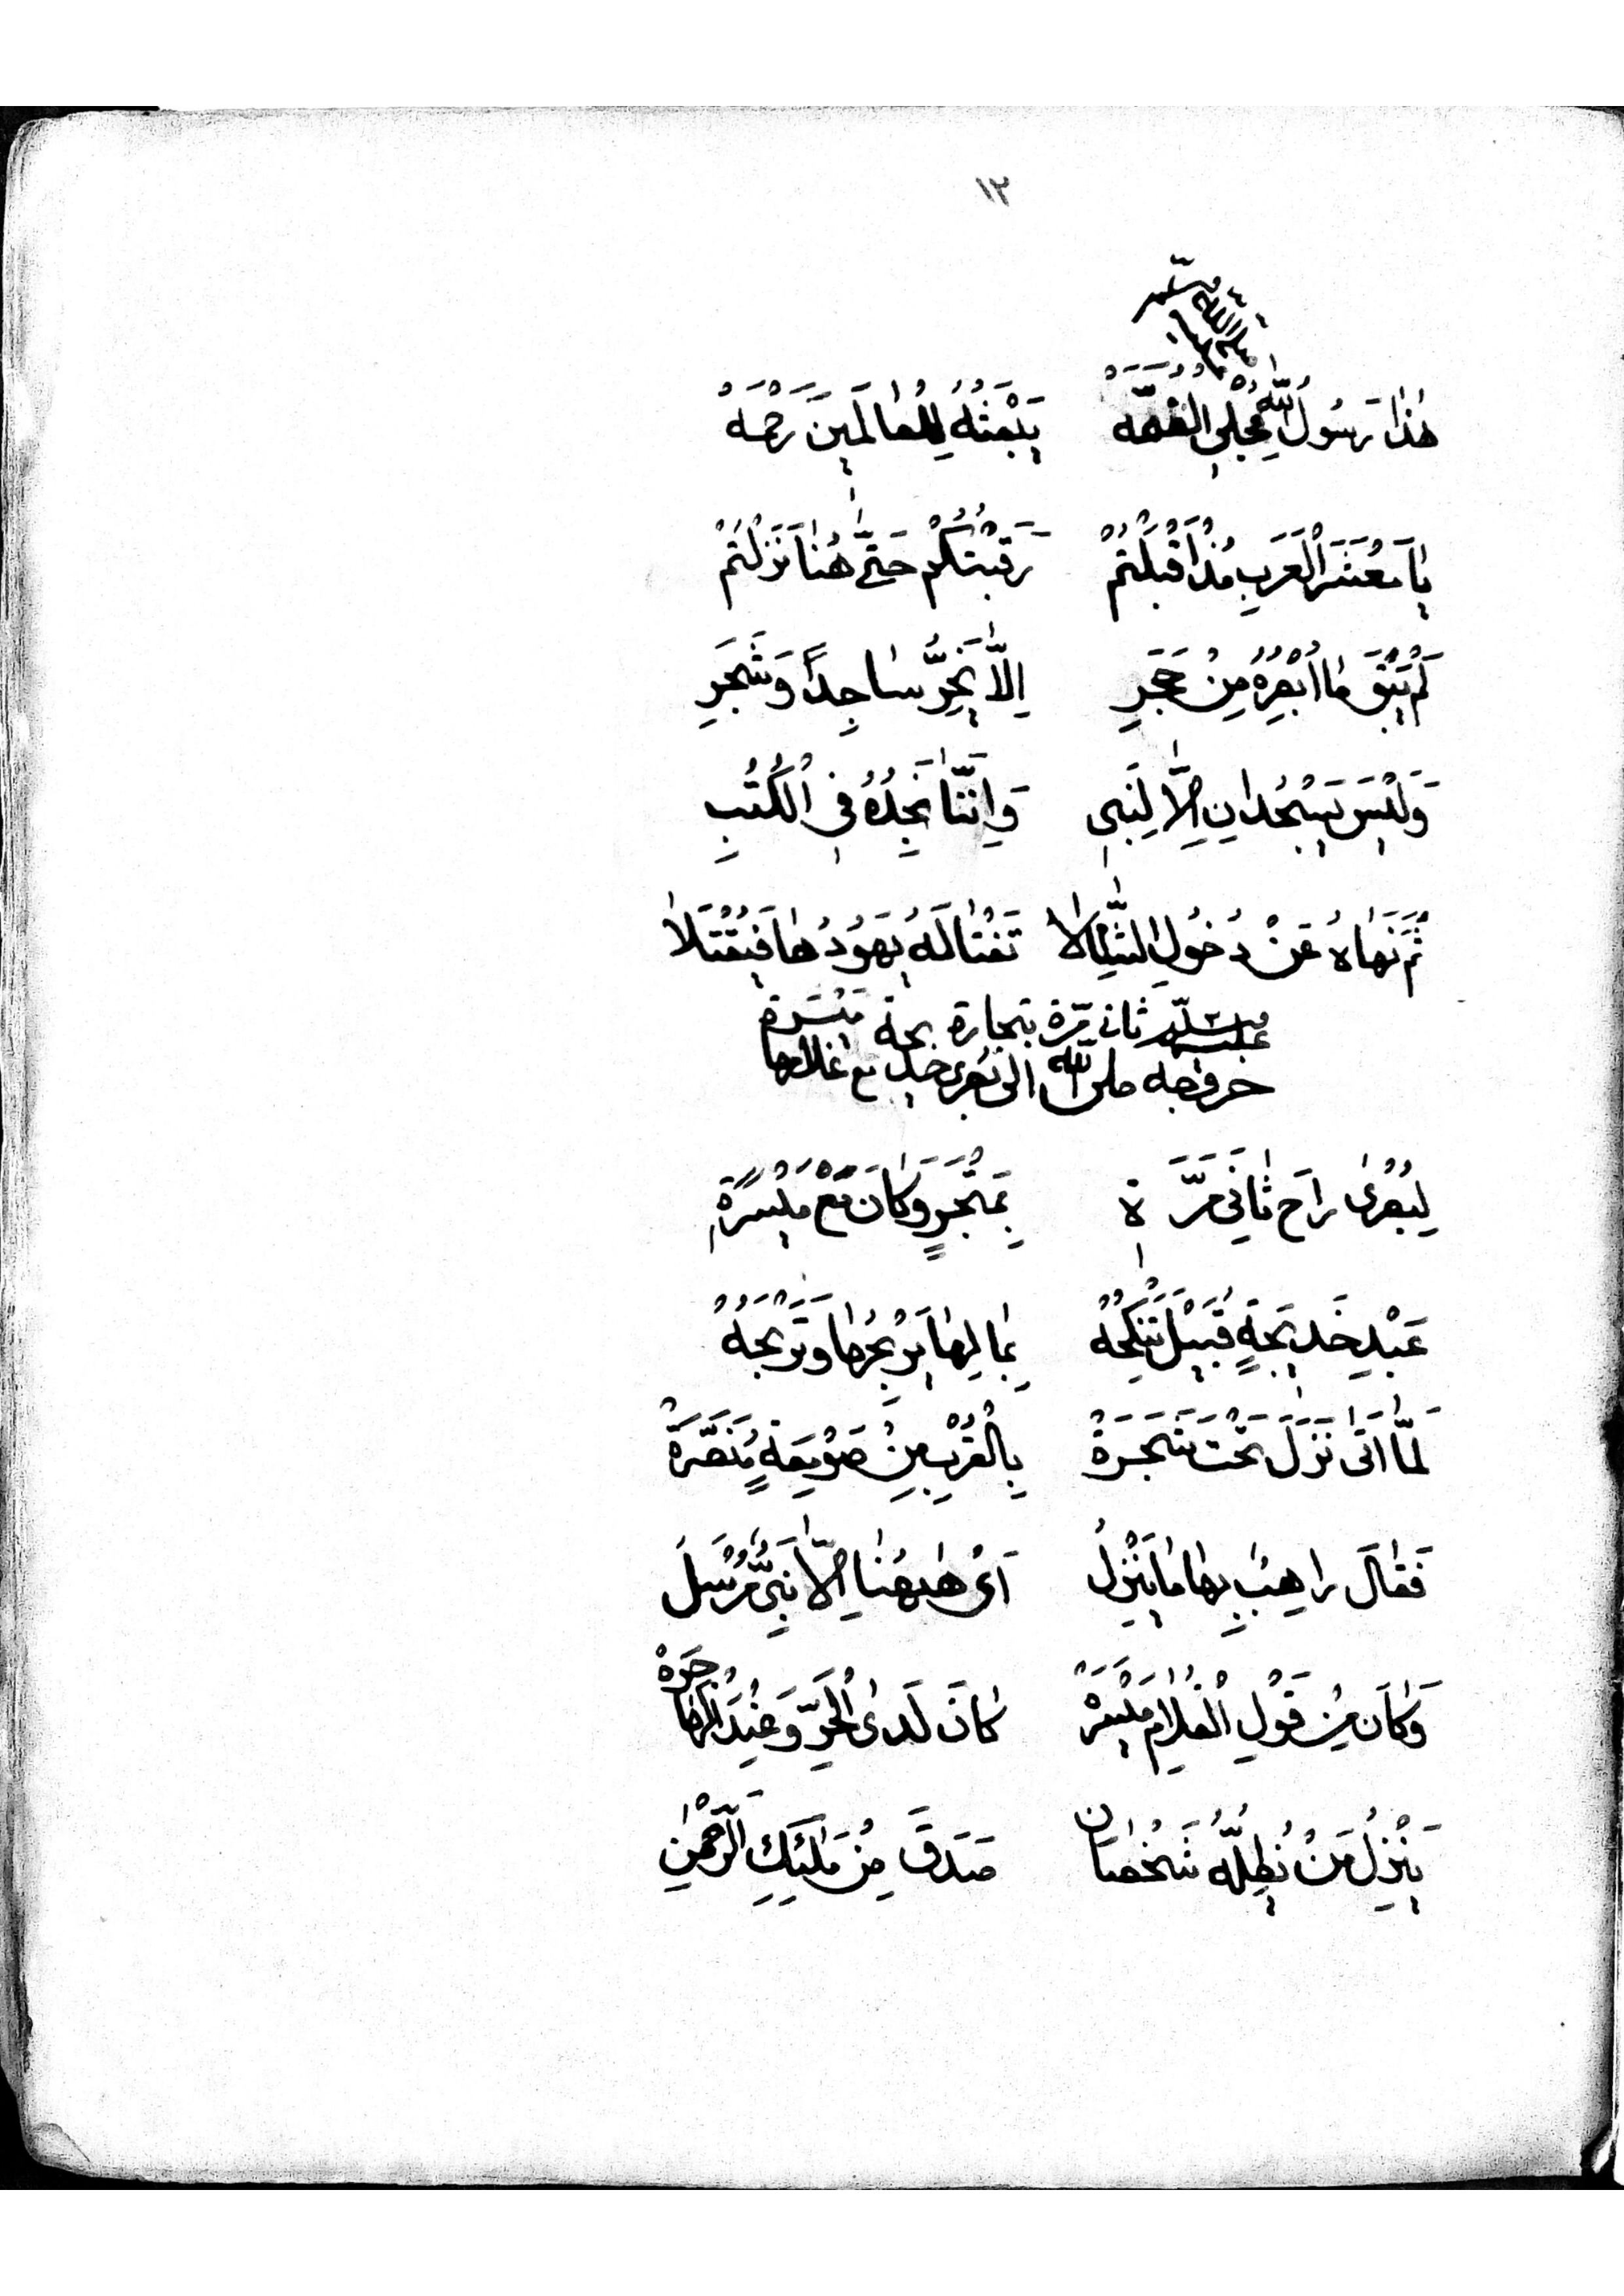 ١٢
صلى الله عليه وسلم
هٰذَا رَسُولُ اللّٰهِ مُجْلِي الْغُمَّهْ يَبْعَثُهُ لِلْعَالَمِينَ رَحْمَهْ
يَا مَعْشَرَ الْعَرَبِ مُذْ أَقْبَلْتُمْ رَقَبْتُكُمْ حَتَّى هُنَا نَزَلْتُمْ
لَمْ يَبْقَ مَا أُبْصِرُهُ مِنْ حَجَرِ اِلَّا يَخِرُّ سَاجِدًا وَشَجَرِ
وَلَيْسَ يَسْجُدَانِ اِلَّا لِنَبِي وَاِنَّنَا نَجِدُهُ فِي الْكُتُبِ
ثُمَّ نَهَاهُ عَنْ دُخُولِ الشَّامِ لَا تَغْتَالَهُ يَهُودُهَا فَيُقْتَلَا
خروجه صلى الله عليه وسلم ثاني مرة الى بصرى بتجارة خديجة مع غلامها ميسرة
لِبُصْرَى رَاحَ ثَانِيَ مَرَّةِ بِمَتْجَرٍ وَكَانَ مَعْ مَيْسَرَةِ
عَبْدِ خَدِيجَةٍ قُبَيْلَ تَنْكِحُهْ بِمَالِهَا يَرْبَحُهَا وَتَرْبَحُهْ
لَمَّا اَتَى نَزَلَ تَحْتَ شَجَرَةْ بِالْقُرْبِ مِنْ صَوْمَعَةٍ مُنَصَّرَةْ
فَقَالَ رَاهِبٌ بِهَا مَا يَنْزِلُ اَىْ هٰهُنَا اِلَّا نَبِيٌّ مُرْسَلُ
وَكَانَ مِنْ قَوْلِ الْغُلَامِ مَيْسَرَهْ كَانَ لَدَى الْحَرِّ وَعِنْدَ الْهَاجِرَهْ
يَنْزِلُ مَنْ يُظِلُّهُ شَخْصَانِ صَدَقَ مِنْ مَلَئِكِ الرَّحْمٰنِ